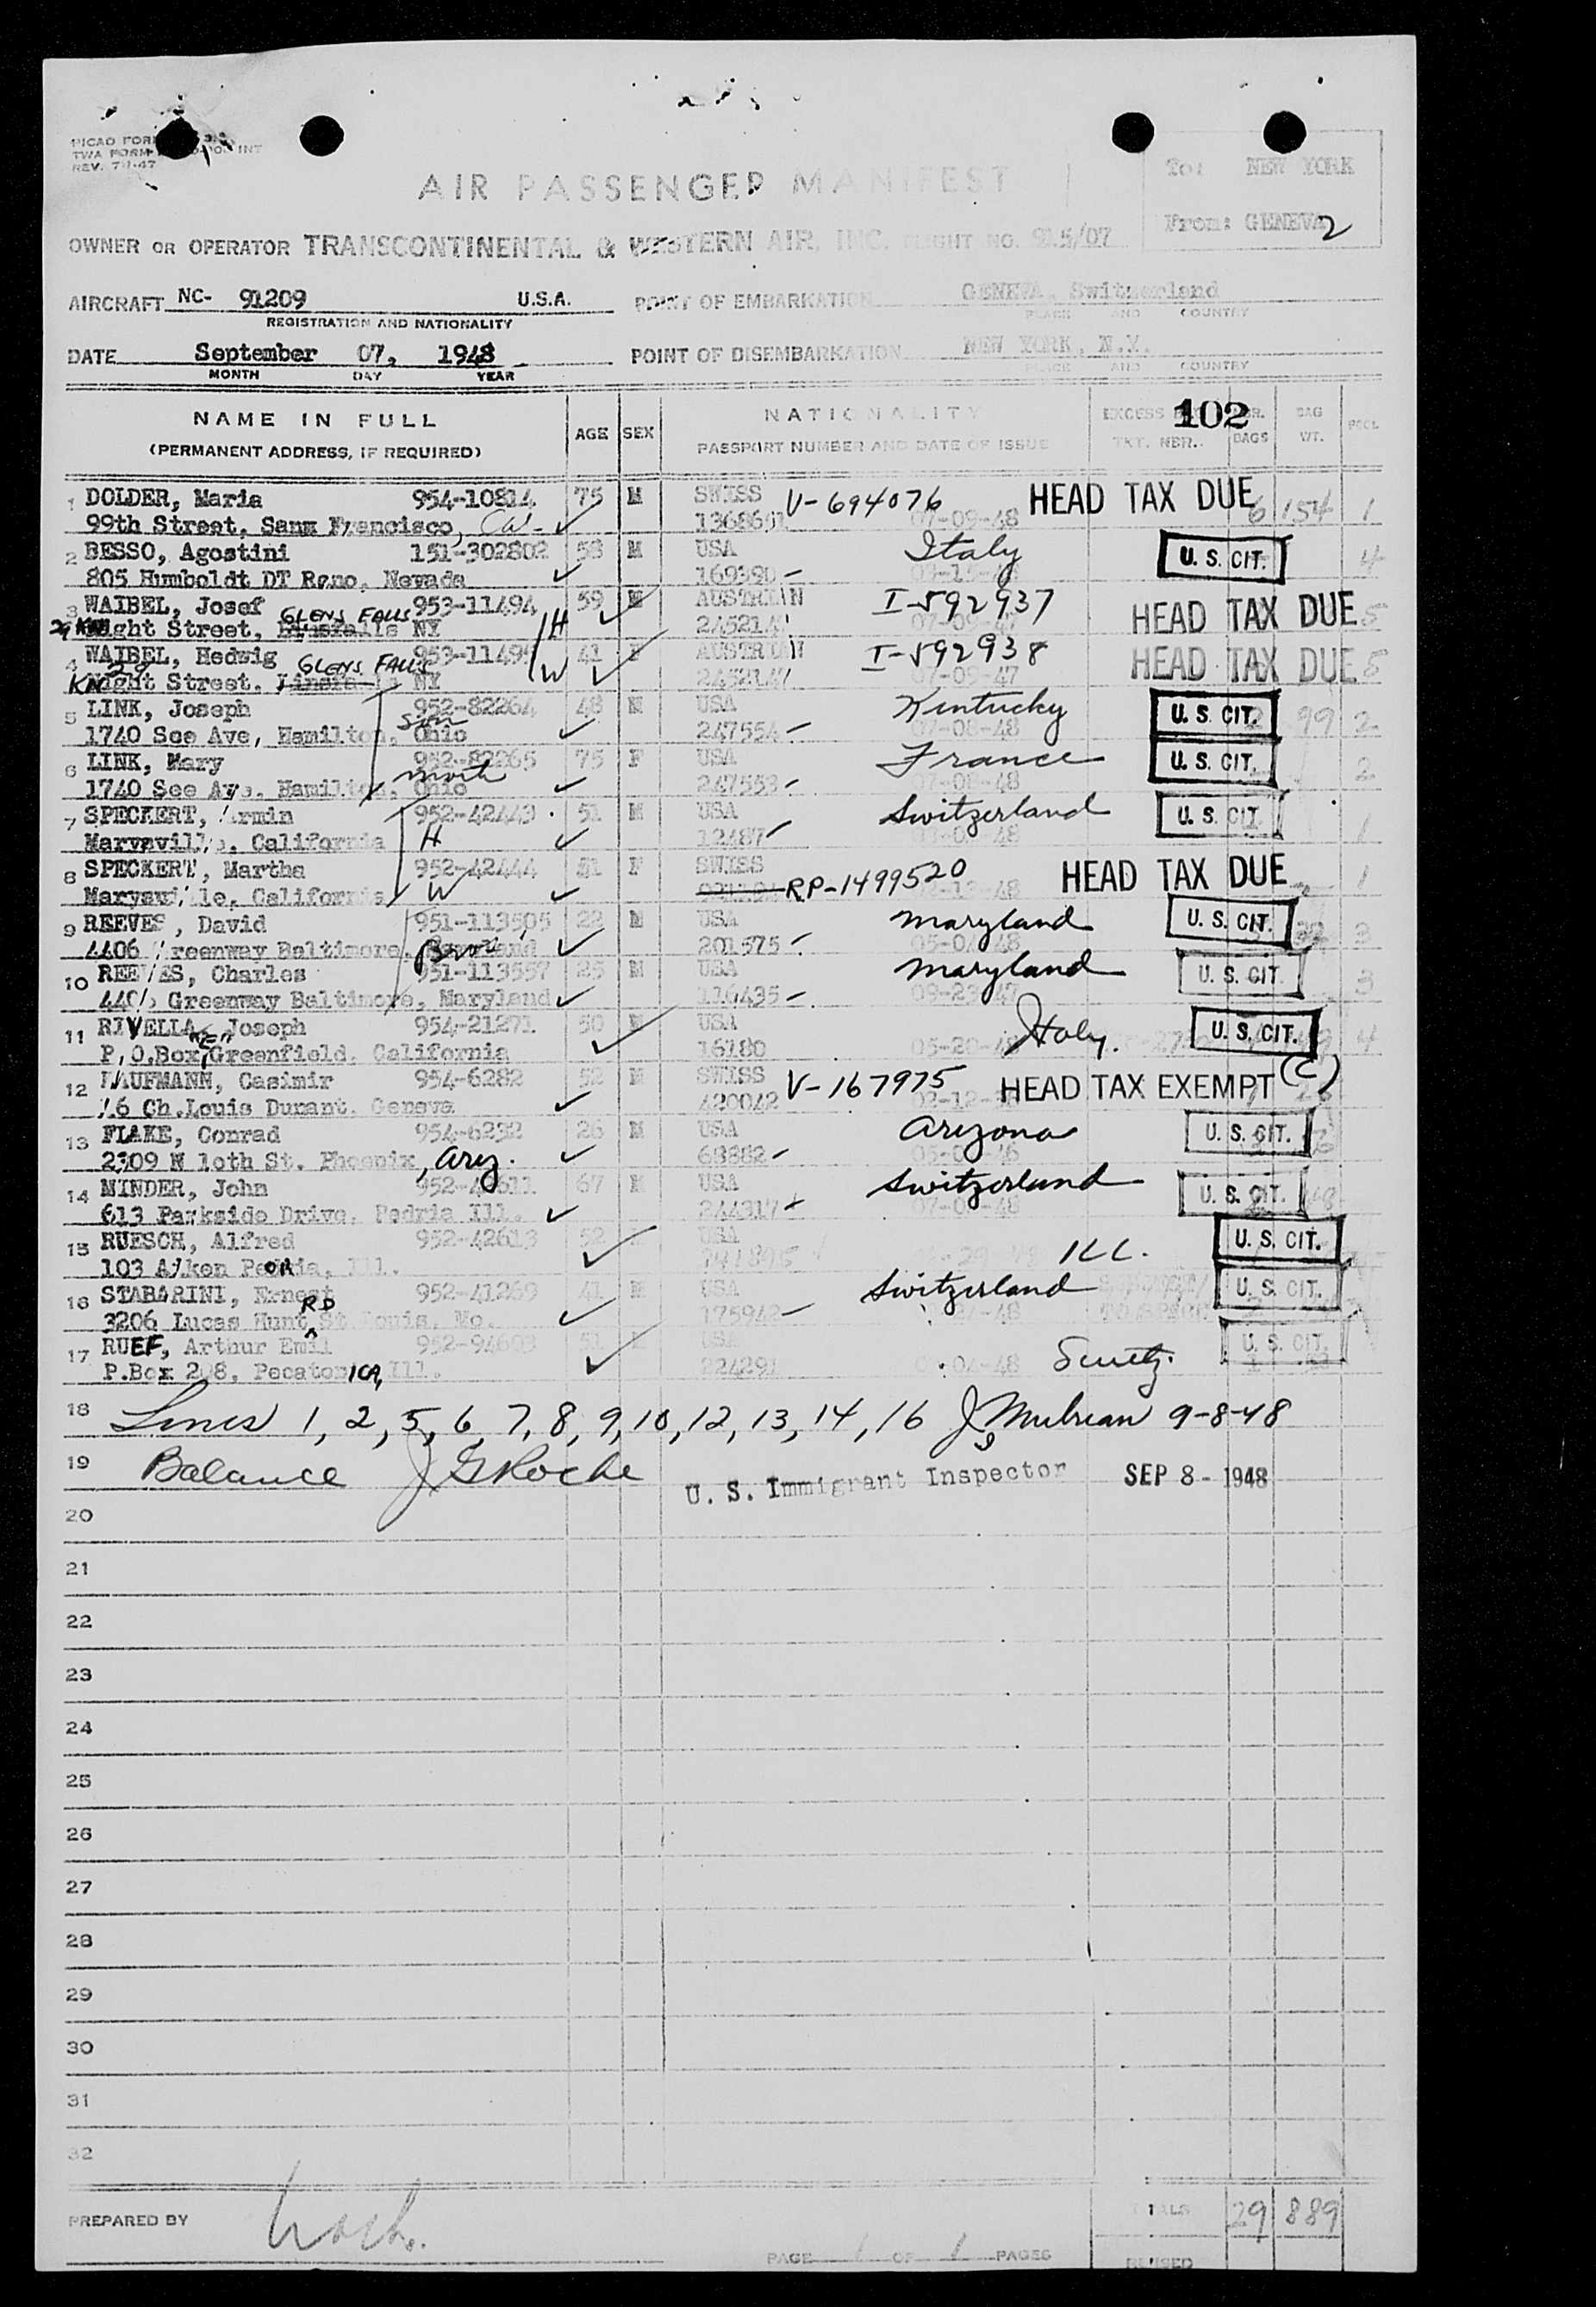 PICAO FORM
TWA FORM INT
REV. 7-1-47
AIR PASSENGER MANIFEST
To: NEW YORK
From: GENEVA 2
OWNER OR OPERATOR TRANSCONTINENTAL & WESTERN AIR, INC. FLIGHT NO. 915/07
AIRCRAFT NC- 91209 U.S.A. POINT OF EMBARKATION GENEVA, Switzerland
REGISTRATION AND NATIONALITY PLACE AND COUNTRY
DATE September 07, 1948 POINT OF DISEMBARKATION NEW YORK, N.Y.
MONTH DAY YEAR PLACE AND COUNTRY
NAME IN FULL AGE SEX NATIONALITY EXCESS 102 BAGS BAG WT.
(PERMANENT ADDRESS, IF REQUIRED) PASSPORT NUMBER AND DATE OF ISSUE TKT. NBR.
1 DOLDER, Maria 954-10814 75 M SWISS V-694076 HEAD TAX DUE 6 154 1
99th Street, Sanm Francisco, Cal- 07-09-48
2 BESSO, Agostini 151-302802 58 M USA Italy U. S. CIT. 4
805 Humboldt DT Reno, Nevada 169390
3 WAIBEL, Josef GLENS FALLS 953-11494 59 M AUSTRIAN I-592937 HEAD TAX DUE 5
29 KNight Street, NY H 07-09-47
4 WAIBEL, Hedwig GLENS FALLS 953-11495 41 F AUSTRIAN I-592938 HEAD TAX DUE 5
29 KNight Street, NY W 07-09-47
5 LINK, Joseph 952-82264 48 M USA Kentucky U. S. CIT. 2 99 2
1740 See Ave, Hamilton, Ohio Son 247554 07-08-48
6 LINK, Mary 952-82265 75 F USA France U. S. CIT. 2
1740 See Ave, Hamilton, Ohio moth 247553 07-08-48
7 SPECKERT, Armin 952-42443 51 M USA Switzerland U. S. CIT. 1
Marysville, California H 12487
8 SPECKERT, Martha 952-42444 51 F SWISS RP-1499520 HEAD TAX DUE 1
Marysville, California W
9 REEVES, David 951-113505 22 M USA Maryland U. S. CIT. 3
4406 Greenway Baltimore, Maryland Broth 201575
10 REEVES, Charles 951-113557 25 M USA Maryland U. S. CIT. 3
4406 Greenway Baltimore, Maryland 116435 09-23-47
11 RIVELLA, Joseph 954-21271 50 M USA Italy. U. S. CIT. 4
P.O.Box "E" Greenfield, California 16180
12 KAUFMANN, Casimir 954-6282 52 M SWISS V-167975 HEAD TAX EXEMPT (C)
16 Ch.Louis Dunant. Geneva 420042
13 FLAKE, Conrad 954-6232 26 M USA Arizona U. S. CIT.
2309 N 10th St. Phoenix, Ariz. 68882
14 MINDER, John 67 M USA Switzerland U. S. CIT.
613 Parkside Drive, Pedria Ill. 244317
15 RUESCH, Alfred 952-42613 52 USA ILL. U. S. CIT.
103 Aiken PeORia, Ill.
16 STABARINI, Ernest 952-41269 41 M USA Switzerland U. S. CIT.
3206 Lucas Hunt RD St Louis, Mo. 175942
17 RUEF, Arthur Emil 952-94603 51 USA Switz. U. S. CIT.
P.Box 208, PecatonICA, Ill. 224291
18 Lines 1, 2, 5, 6, 7, 8, 9, 10, 12, 13, 14, 16 J Mulrean 9-8-48
19 Balance J G Roche U. S. Immigrant Inspector SEP 8 - 1948
20
21
22
23
24
25
26
27
28
29
30
31
32
PREPARED BY TOTALS 29 889
PAGE 1 OF 1 PAGES